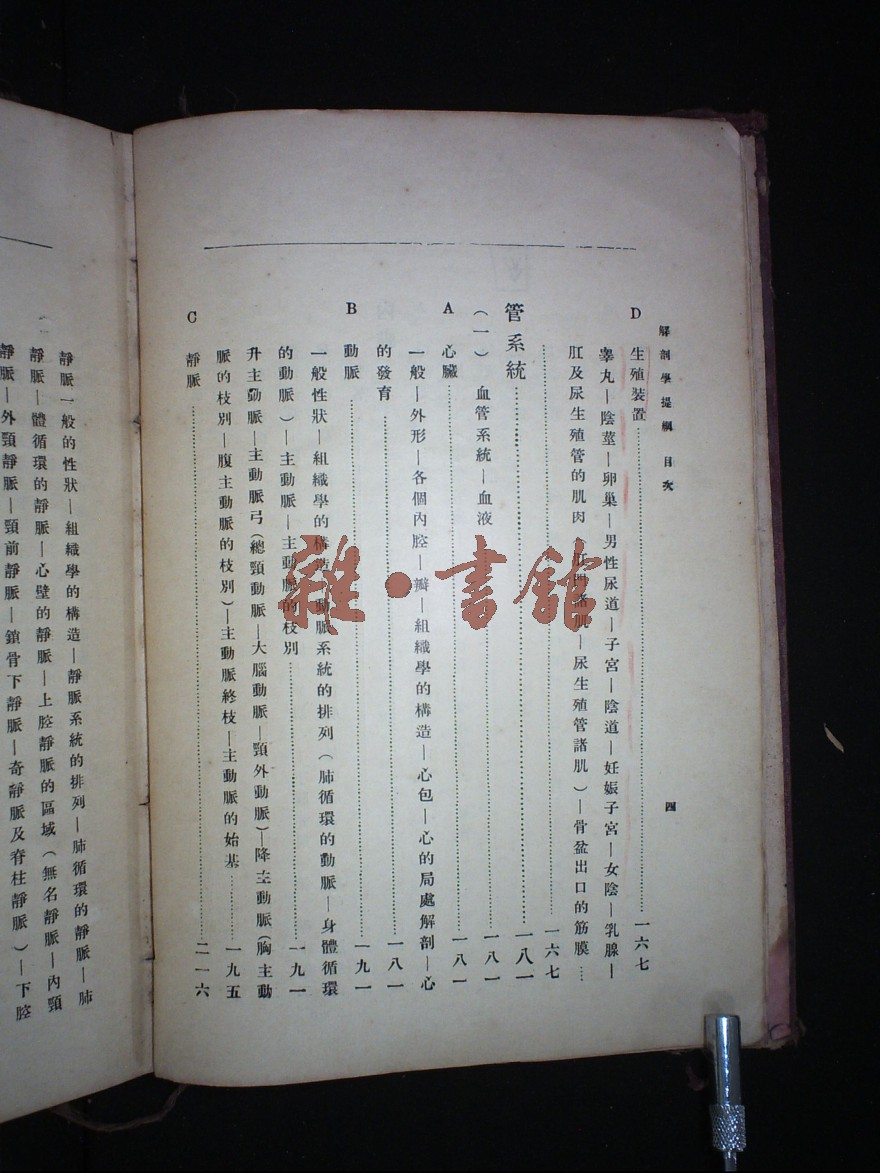 解剖學提綱 目次
四
D 生殖裝置……一六七
睾丸—陰莖—卵巢—男性尿道—子宮—陰道—妊娠子宮—女陰—乳腺—
肛及尿生殖管的肌肉 肛門諸肌—尿生殖管諸肌)—骨盆出口的筋膜…
……一六七
管系統……一八一
(一) 血管系統—血液……一八一
A 心臟……一八一
一般—外形—各個內腔—瓣—組織學的構造—心包—心的局處解剖—心
的發育……一八一
B 動脈……一九一
一般性狀—組織學的構造 動脈系統的排列(肺循環的動脈—身體循環
的動脈)—主動脈—主動脈的枝別……一九一
升主動脈—主動脈弓(總頸動脈—大腦動脈—頸外動脈)—降主動脈(胸主動
脈的枝別—腹主動脈的枝別)—主動脈終枝—主動脈的始基……一九五
C 靜脈……二一六
靜脈一般的性狀—組織學的構造—靜脈系統的排列—肺循環的靜脈—肺
靜脈—體循環的靜脈—心壁的靜脈—上腔靜脈的區域(無名靜脈—內頸
靜脈—外頸靜脈—頸前靜脈—鎖骨下靜脈—奇靜脈及脊柱靜脈)—下腔
雜·書館